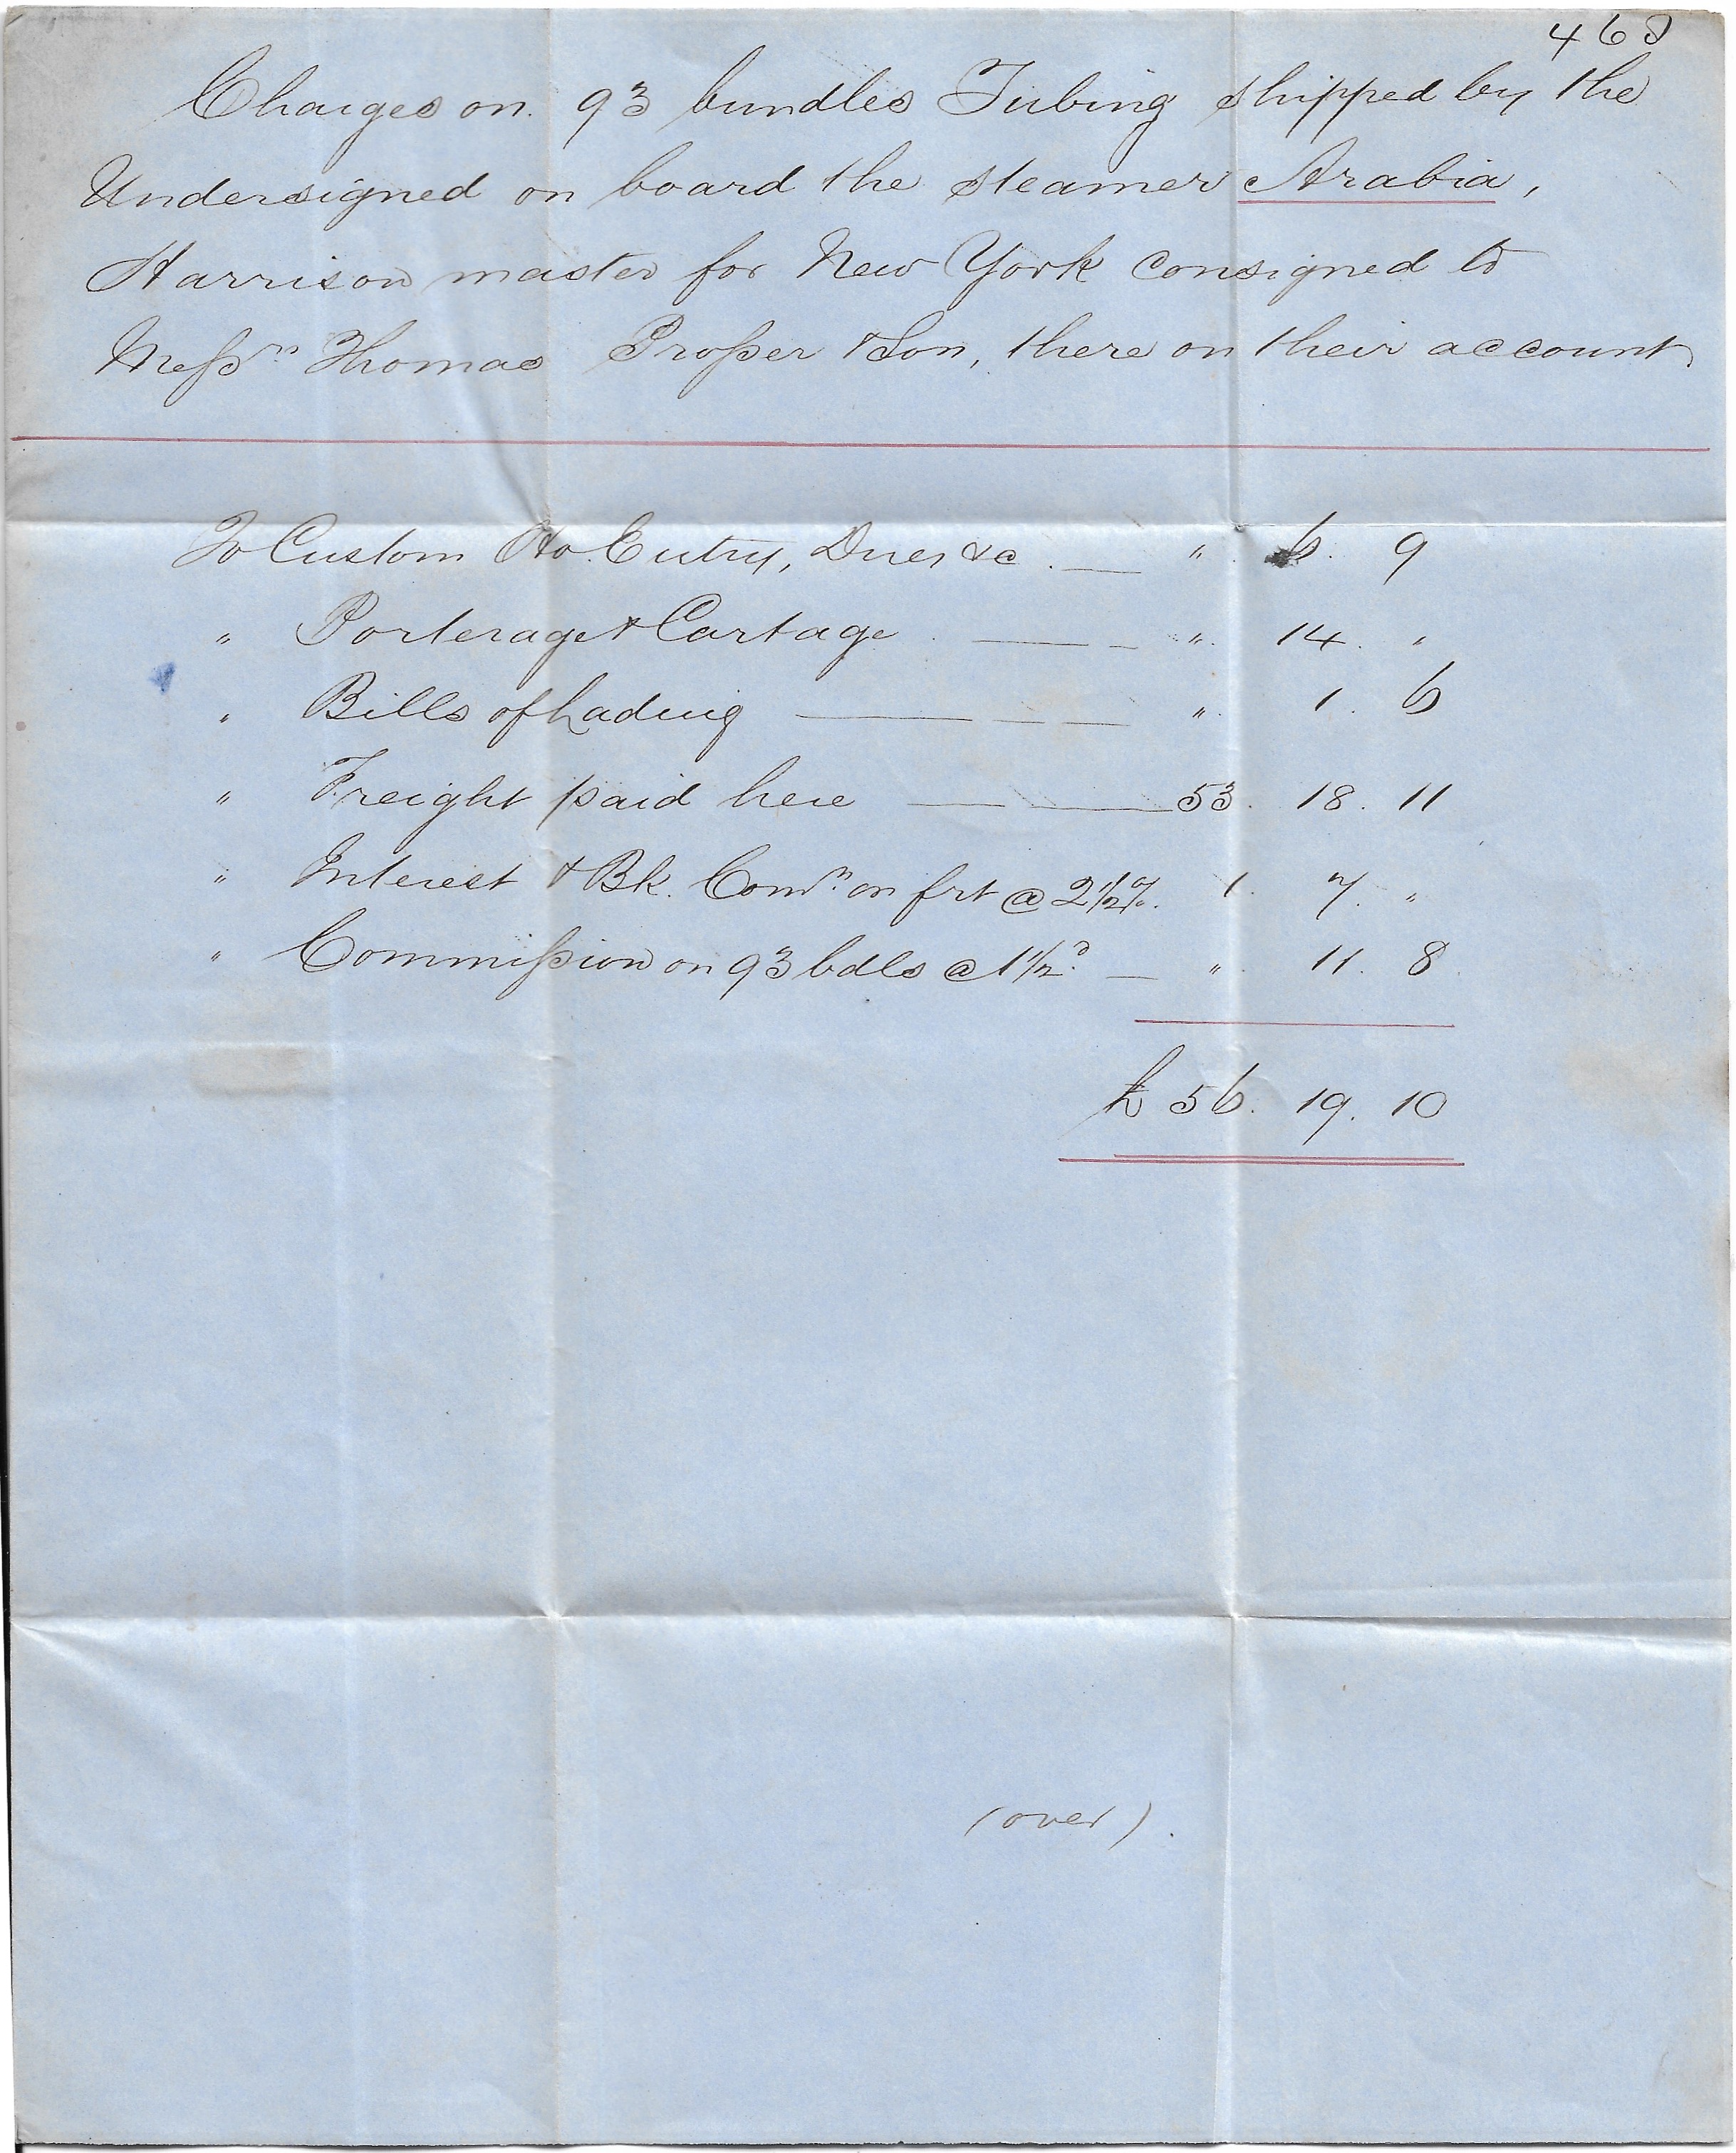 468
Charges on 93 bundles Tubing shipped by the
Undersigned on board the steamer Arabia,
Harrison master for New York consigned to
Messrs Thomas Prosser & Son, there on their account
To Custom Ho. Entry, Dues &c. — " 6. 9
" Porterage & Cartage — " 14. "
" Bills of Lading — " 1. 6
" Freight paid here — 53. 18. 11
" Interest & Bk. Comn. on frt @ 2 1/2 %. 1. 7. "
" Commission on 93 bdls @ 1 1/2d. — " 11. 8
£ 56. 19. 10
(over).